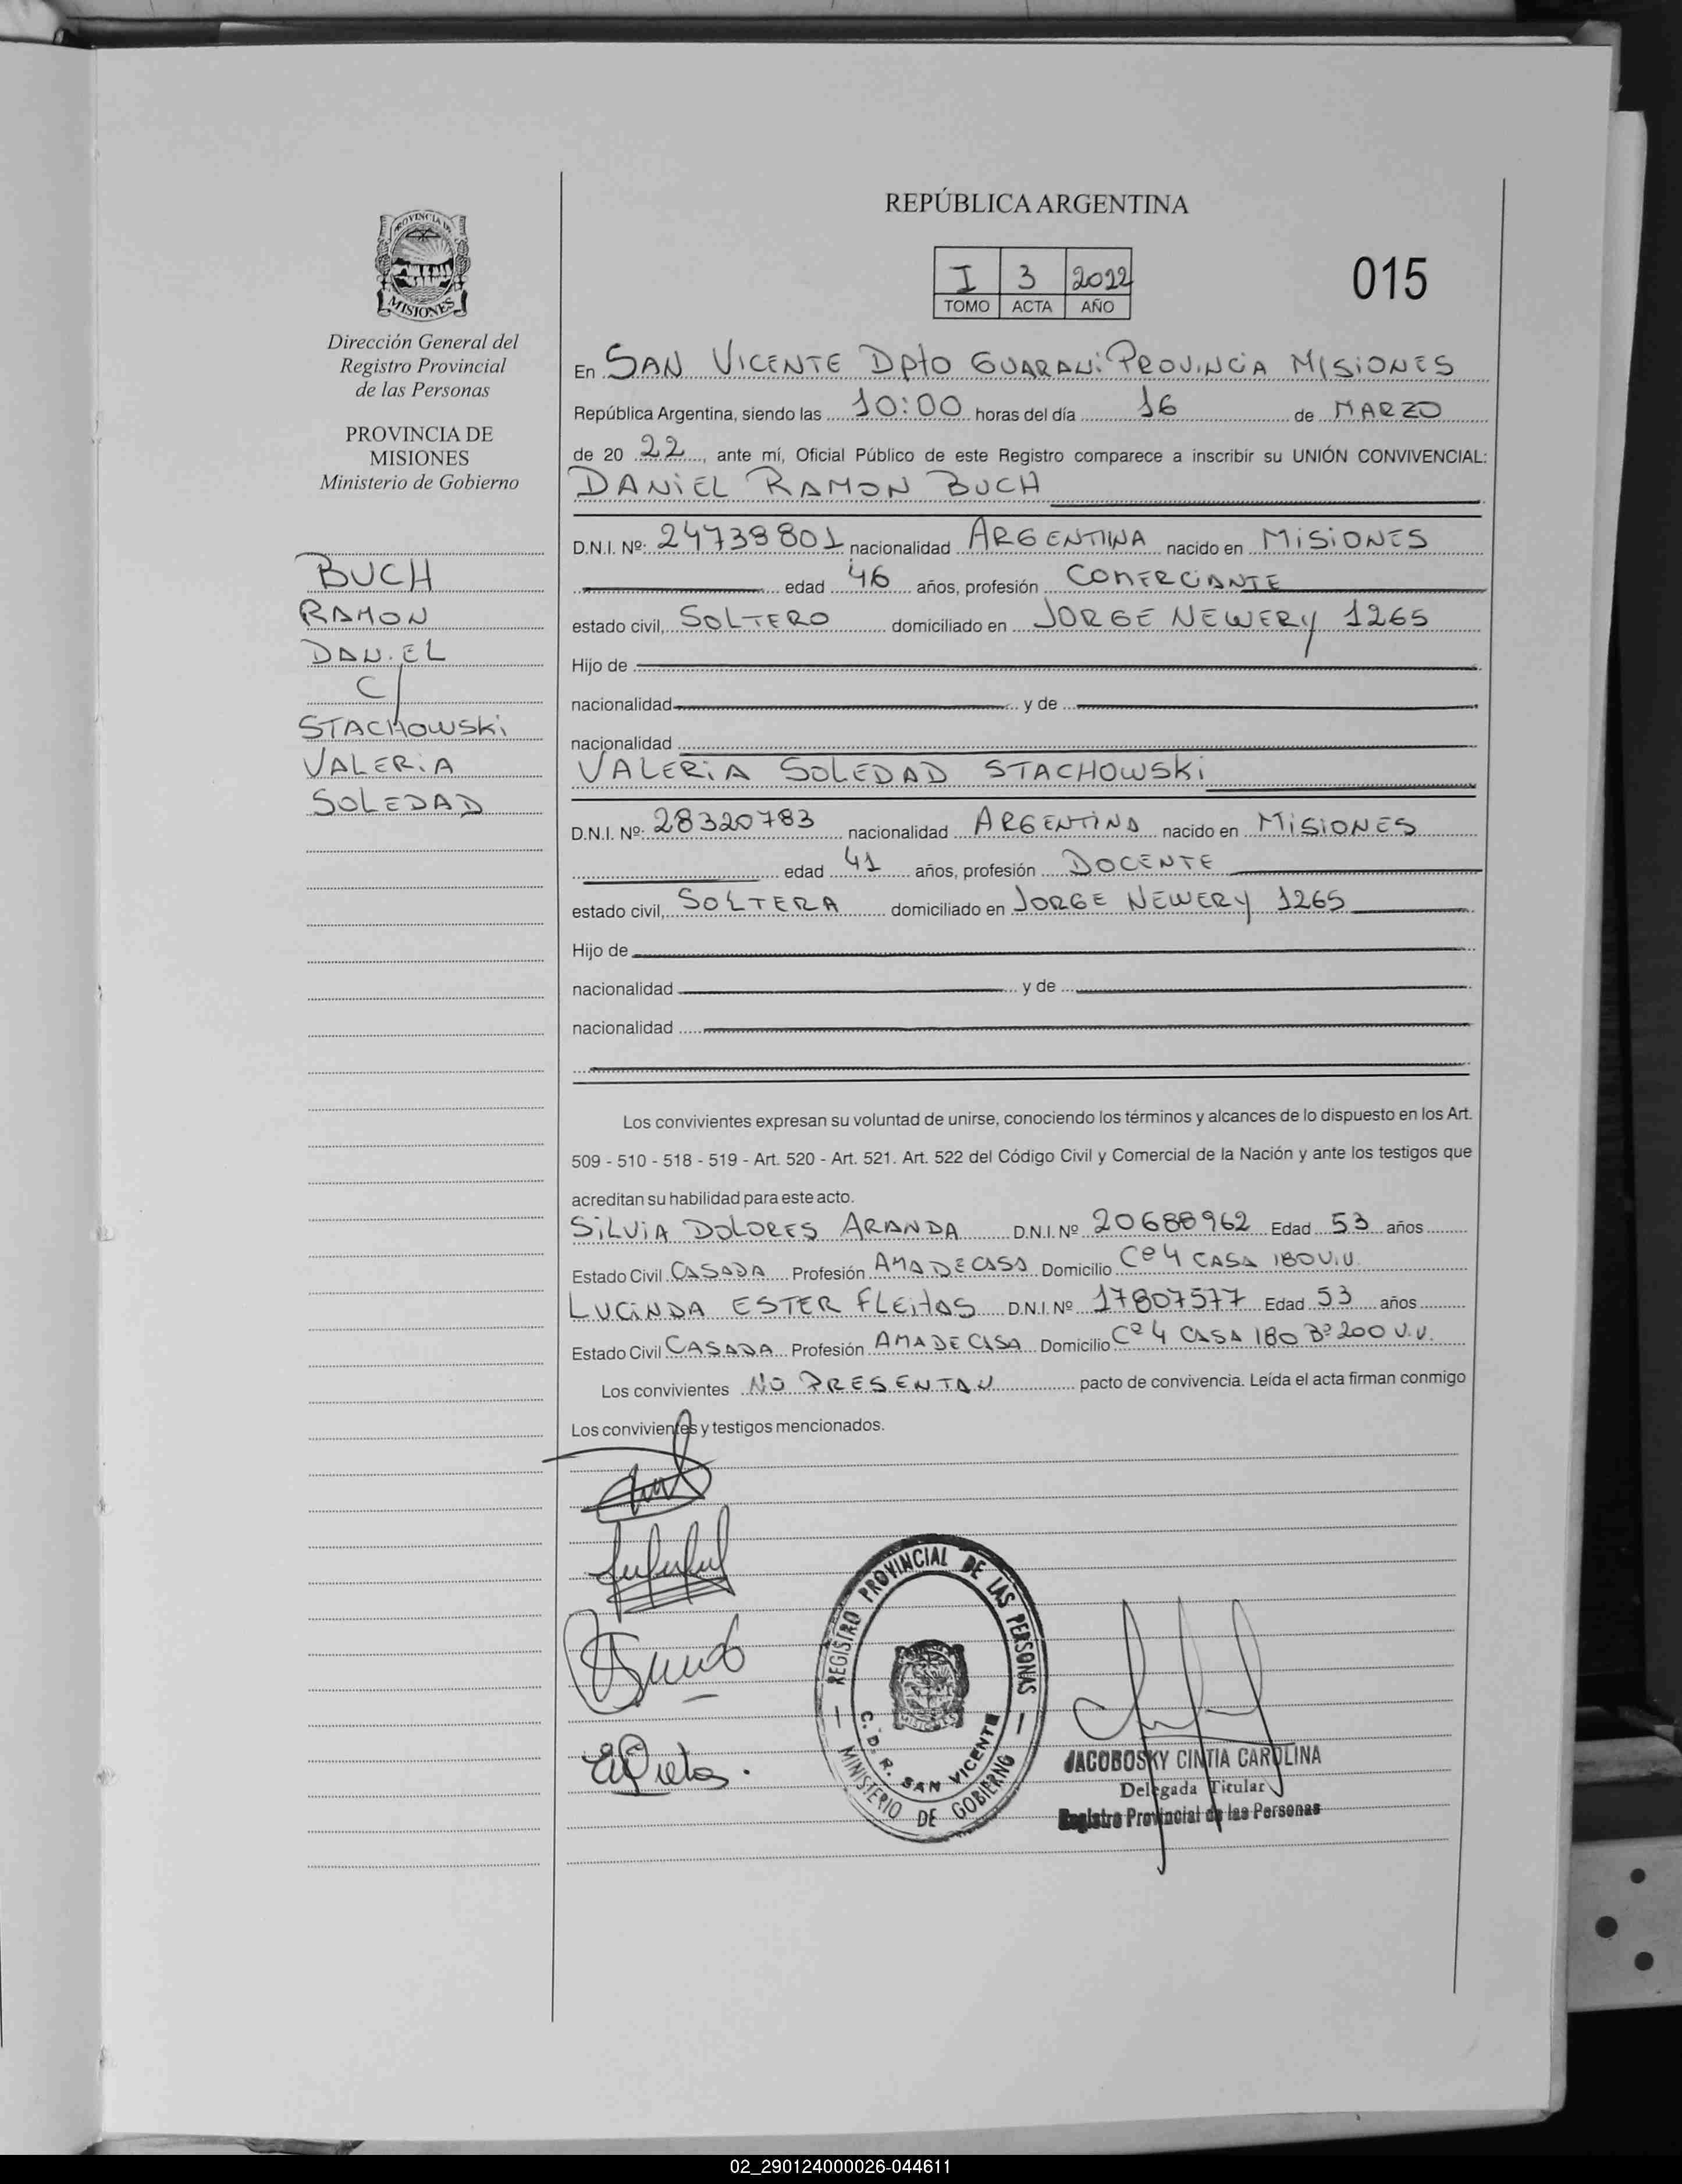 REPÚBLICA ARGENTINA
I 3 2022
TOMO ACTA AÑO
015
PROVINCIA DE
MISIONES
Dirección General del
Registro Provincial
de las Personas
PROVINCIA DE
MISIONES
Ministerio de Gobierno
BUCH
RAMON
DANIEL
C/
STACHOWSKI
VALERIA
SOLEDAD
En SAN VICENTE DPtO GUARANI PROVINCIA MISIONES
República Argentina, siendo las 10:00 horas del día 16 de MARZO
de 20 22, ante mí, Oficial Público de este Registro comparece a inscribir su UNIÓN CONVIVENCIAL:
DANIEL RAMON BUCH
D.N.I. Nº: 24739801 nacionalidad ARGENTINA nacido en MISIONES
edad 46 años, profesión COMERCIANTE
estado civil, SOLTERO domiciliado en JORGE NEWERY 1265
Hijo de
nacionalidad y de
nacionalidad
VALERIA SOLEDAD STACHOWSKI
D.N.I. Nº: 28320783 nacionalidad ARGENTINA nacido en MISIONES
edad 41 años, profesión DOCENTE
estado civil, SOLTERA domiciliado en JORGE NEWERY 1265
Hijo de
nacionalidad y de
nacionalidad
Los convivientes expresan su voluntad de unirse, conociendo los términos y alcances de lo dispuesto en los Art.
509 - 510 - 518 - 519 - Art. 520 - Art. 521. Art. 522 del Código Civil y Comercial de la Nación y ante los testigos que
acreditan su habilidad para este acto.
SILVIA DOLORES ARANDA D.N.I. Nº 20688962 Edad 53 años
Estado Civil CASADA Profesión AMA DE CASA Domicilio Cº 4 CASA 180 V.V.
LUCINDA ESTER FLEITAS D.N.I. Nº 17807577 Edad 53 años
Estado Civil CASADA Profesión AMA DE CASA Domicilio Cº 4 CASA 180 Bº 200 V.V.
Los convivientes NO PRESENTAN pacto de convivencia. Leída el acta firman conmigo
Los convivientes y testigos mencionados.
REGISTRO PROVINCIAL DE LAS PERSONAS
MINISTERIO DE GOBIERNO
C. D. R. SAN VICENTE
MISIONES
JACOBOSKY CINTIA CAROLINA
Delegada Titular
Registro Provincial de las Personas
02_290124000026-044611